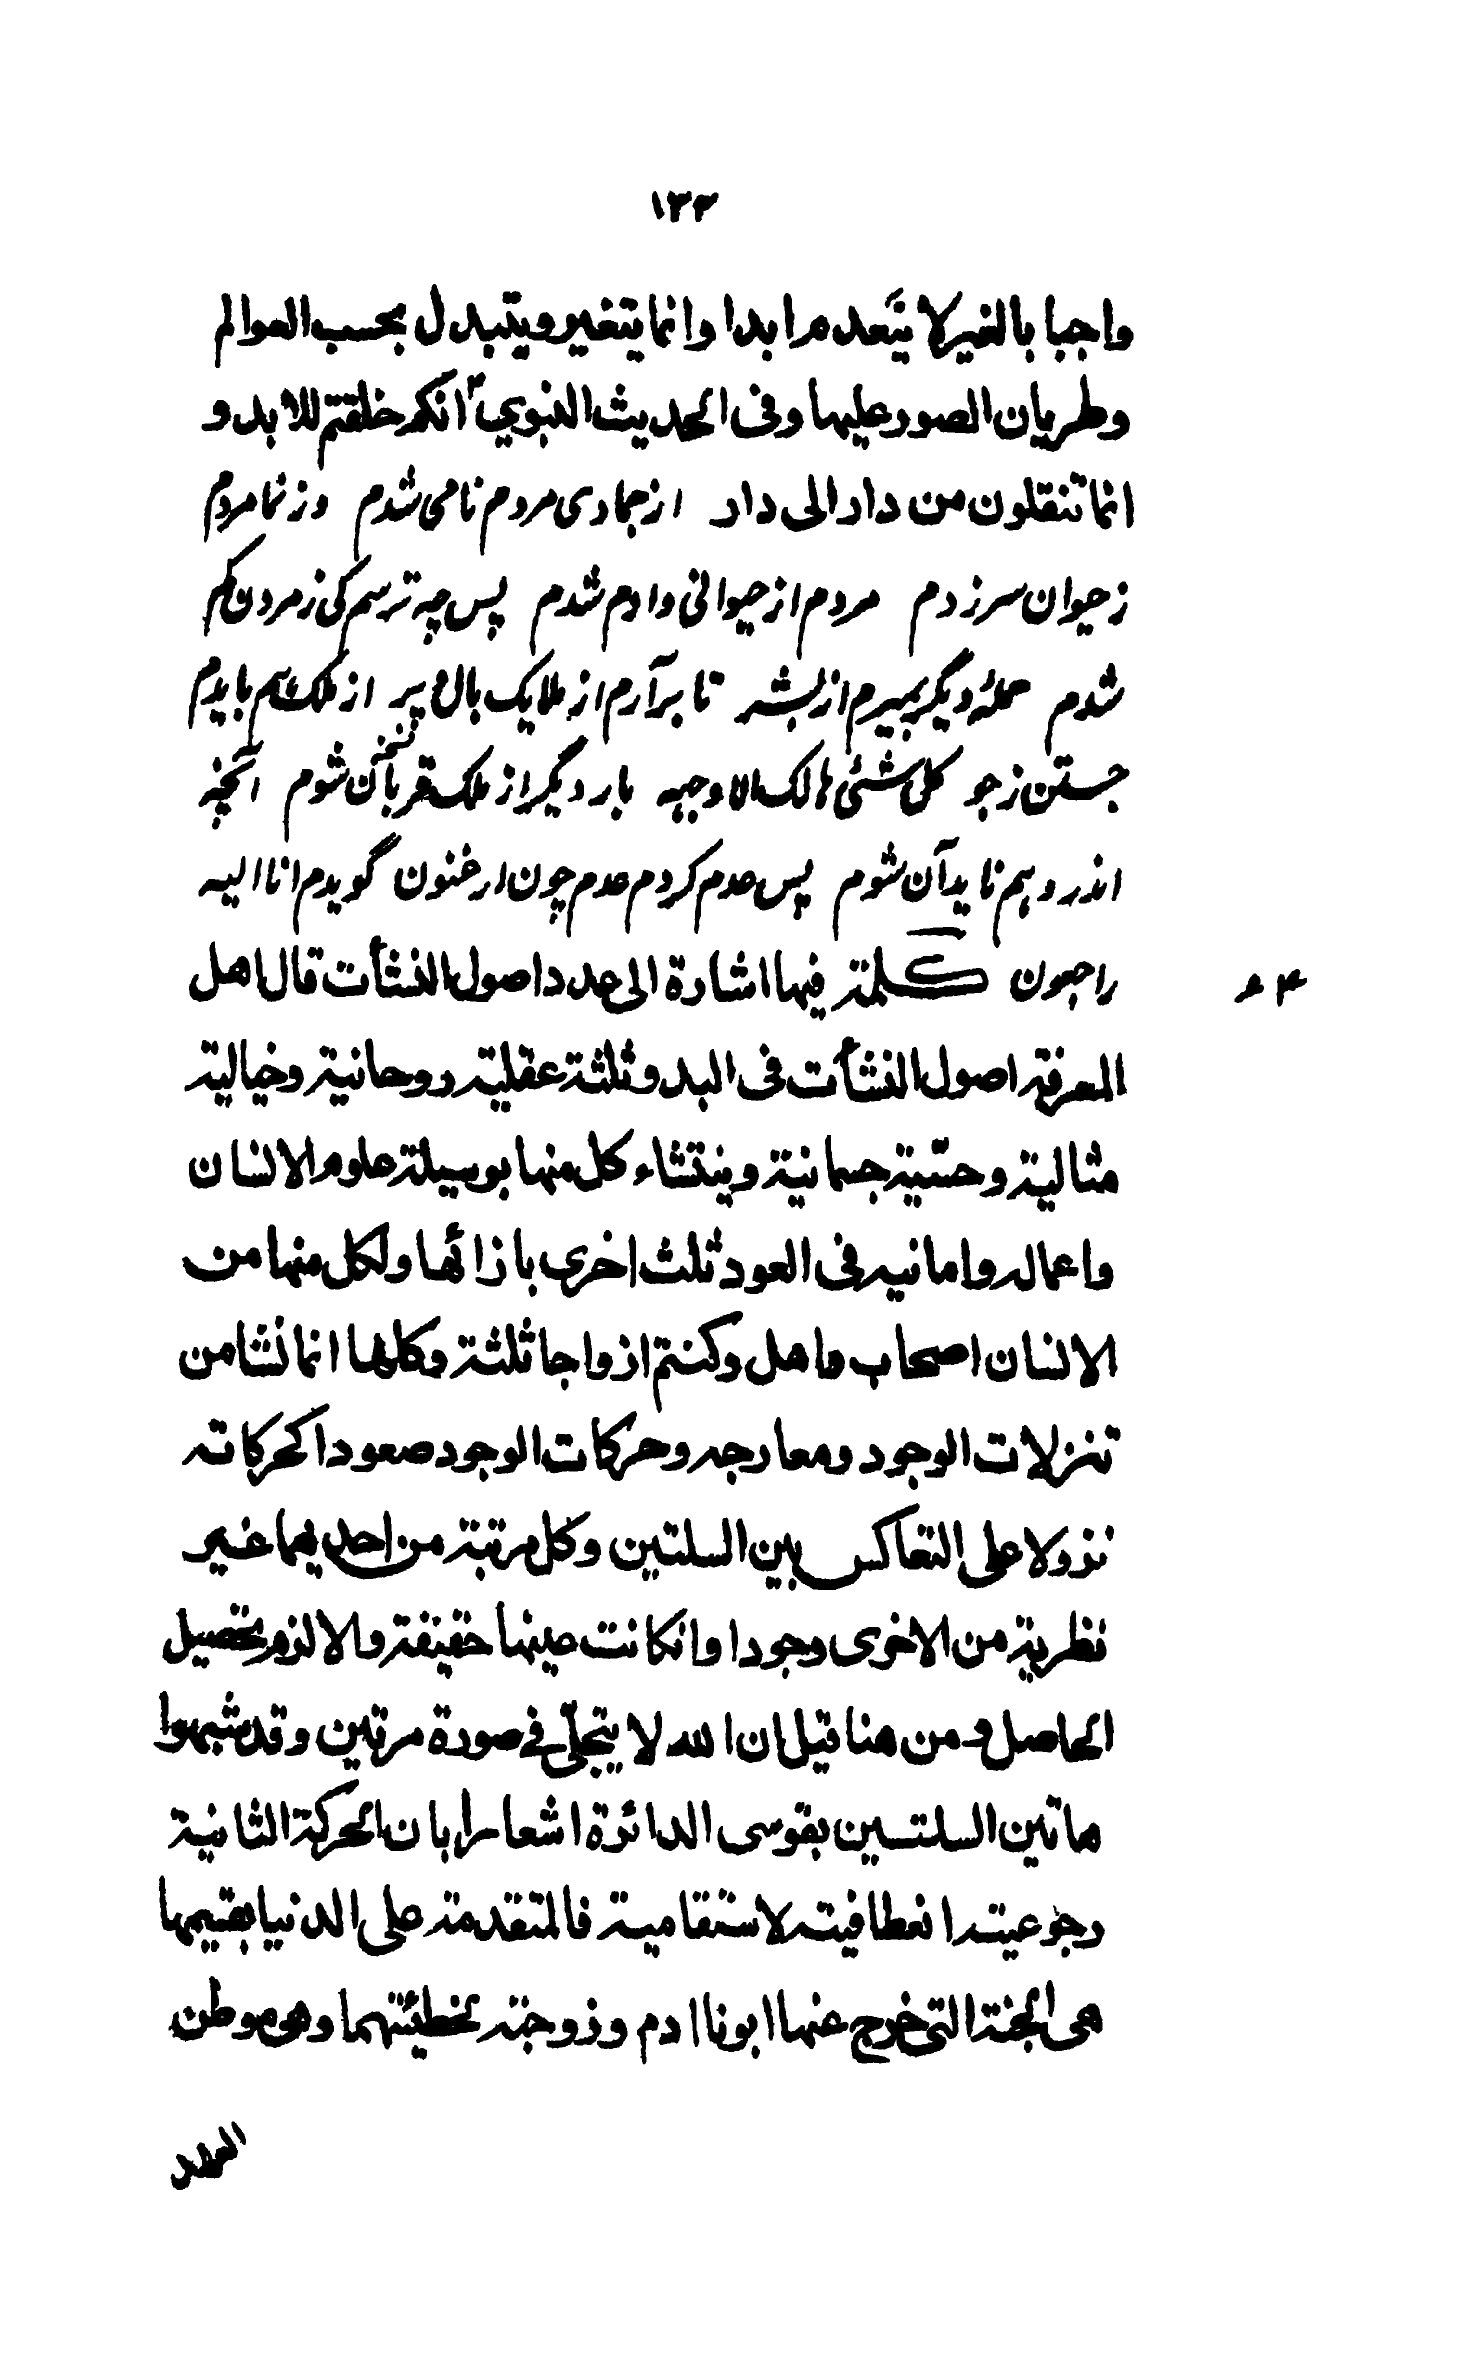 ١٣٣
واجبا بالغير لا ينعدم ابدا وانما يتغير ويتبدل بحسب العوالم
وطريان الصور عليها وفى الحديث النبوي انكم خلقتم للابد و
انما تنقلون من دار الى دار از جمادى مردم نامى شدم وز نما مردم
ز حيوان سر زدم مردم از حيوانى وادم شدم پس چه ترسم كى ز مردن كم
شدم حملۀ ديگر بميرم از بشر تا برآرم از ملايك بال و پر از ملك هم بايدم
جستن ز جو كل شئى هالك الا وجهه بار ديگر از ملك قربان شوم آنچه
اندر وهم نايد آن شوم پس عدم كردم عدم چون ارغنون گويدم انا اليه
راجعون كلمة فيها اشارة الى عدد اصول النشأت قال اهل
المعرفة اصول النشأت فى البدو ثلثة عقلية روحانية وخيالية
مثالية وحسّية جسمانية وينتشاء كل منها بوسيلة علوم الانسان
واعماله وامانيه فى العود ثلث اخرى بازائها ولكل منها من
الانسان اصحاب واهل وكنتم ازواجا ثلثة وكلها انما نشا من
تنزلات الوجود ومعارجه وحركات الوجود صعودا كحركاته
نزولا على التعاكس بين السلتين وكل مرتبة من احديهما غير
نظرية من الاخرى وجودا وانكانت عينها حقيقة والا لزم تحصيل
الحاصل ومن هنا قيل ان الله لا يتجلّى فى صورة مرتين وقد شبهوا
هاتين السلتسين بقوسى الدائرة اشعارا بان الحركة الثانية
رجوعية انعطافية لا استقامية فالمتقدمة على الدنيا بقتيمها
هى الجنة التى خرج عنها ابونا ادم وزوجته بخطيئتهما وهى موطن
العهد